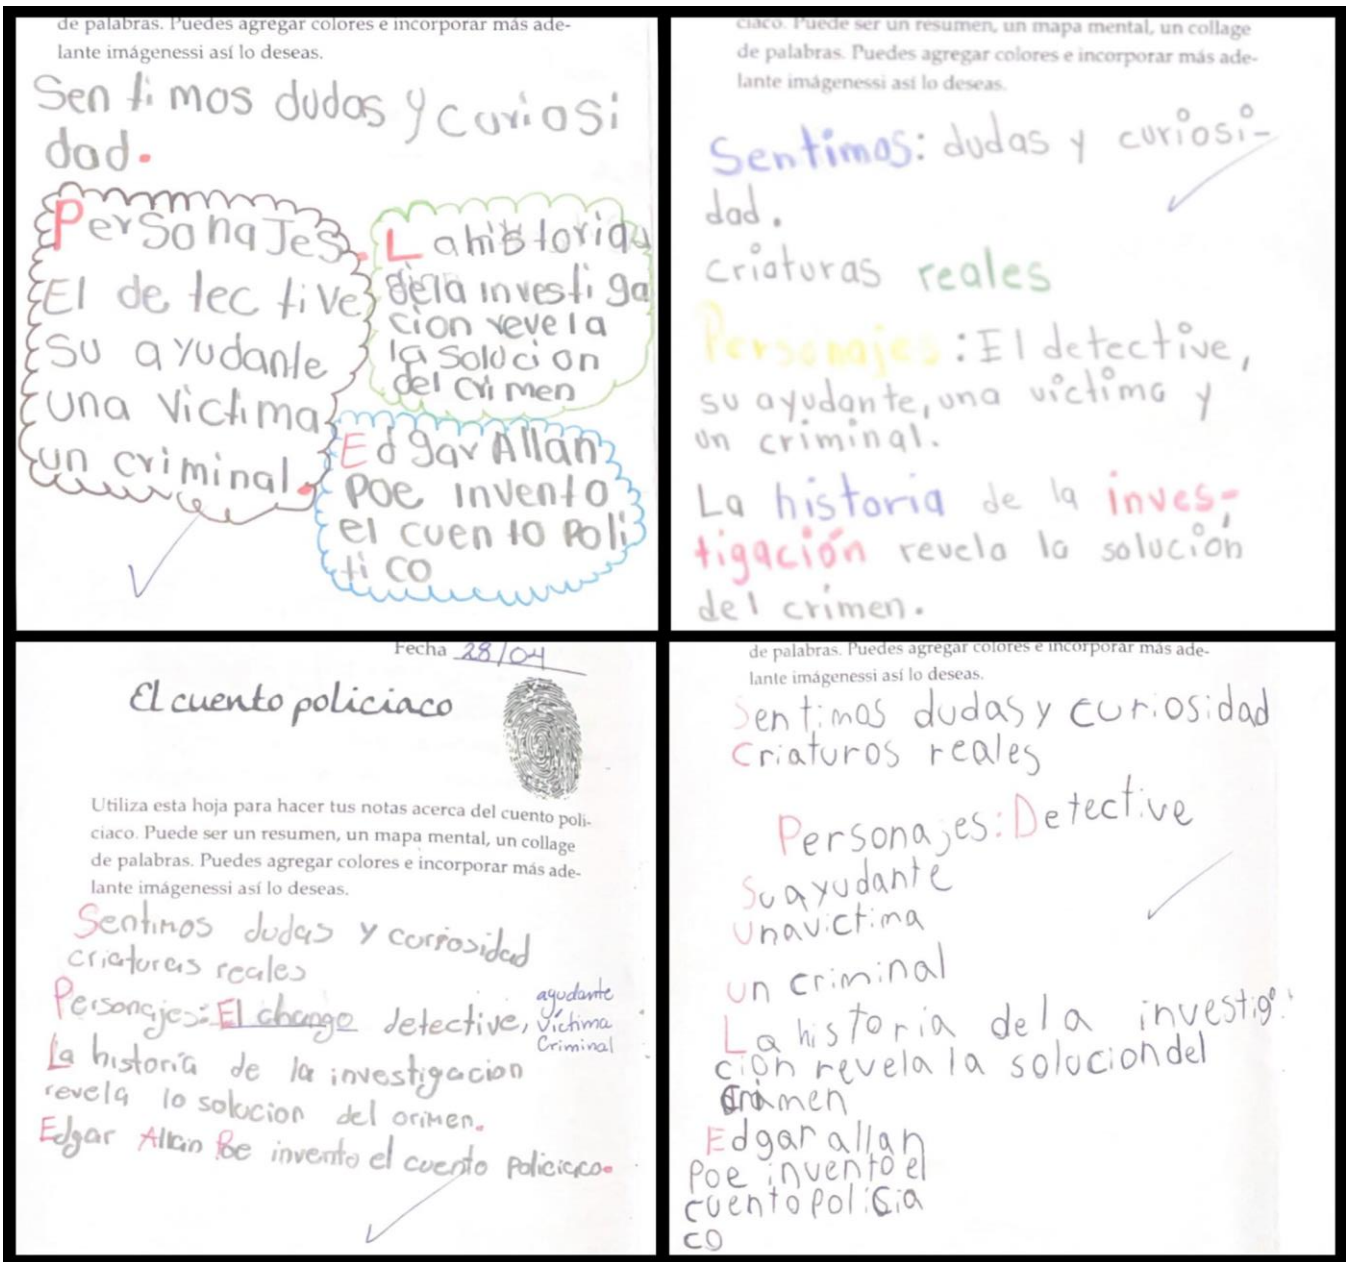 de palabras. Puedes agregar colores e incorporar más ade-
lante imágenessi así lo deseas.
Sentimos dudas y curiosi
dad.
Personajes.
El detective
su ayudante
una victima
un criminal.
La historia
de la investiga
cion revela
la solucion
del crimen
Edgar Allan
Poe invento
el cuento Poli
ti co
ciaco. Puede ser un resumen, un mapa mental, un collage
de palabras. Puedes agregar colores e incorporar más ade-
lante imágenessi así lo deseas.
Sentimos: dudas y curiosi-
dad.
criaturas reales
Personajes: El detective,
su ayudante, una victima y
un criminal.
La historia de la inves-
tigación revela la solución
del crimen.
Fecha 28/04
El cuento policiaco
Utiliza esta hoja para hacer tus notas acerca del cuento poli-
ciaco. Puede ser un resumen, un mapa mental, un collage
de palabras. Puedes agregar colores e incorporar más ade-
lante imágenessi así lo deseas.
Sentimos dudas y curiosidad
criaturas reales
Personajes: El chango detective, ayudante
y víctima
Criminal
La historia de la investigacion
revela la solucion del crimen.
Edgar Allan Poe invento el cuento policiaco.
de palabras. Puedes agregar colores e incorporar más ade-
lante imágenessi así lo deseas.
Sentimos dudas y curiosidad
Criaturas reales
Personajes: Detective
Su ayudante
Una victima
un criminal
La historia de la investiga
ción revela la solucion del
crimen
Edgar allan
Poe invento el
cuento policia
co